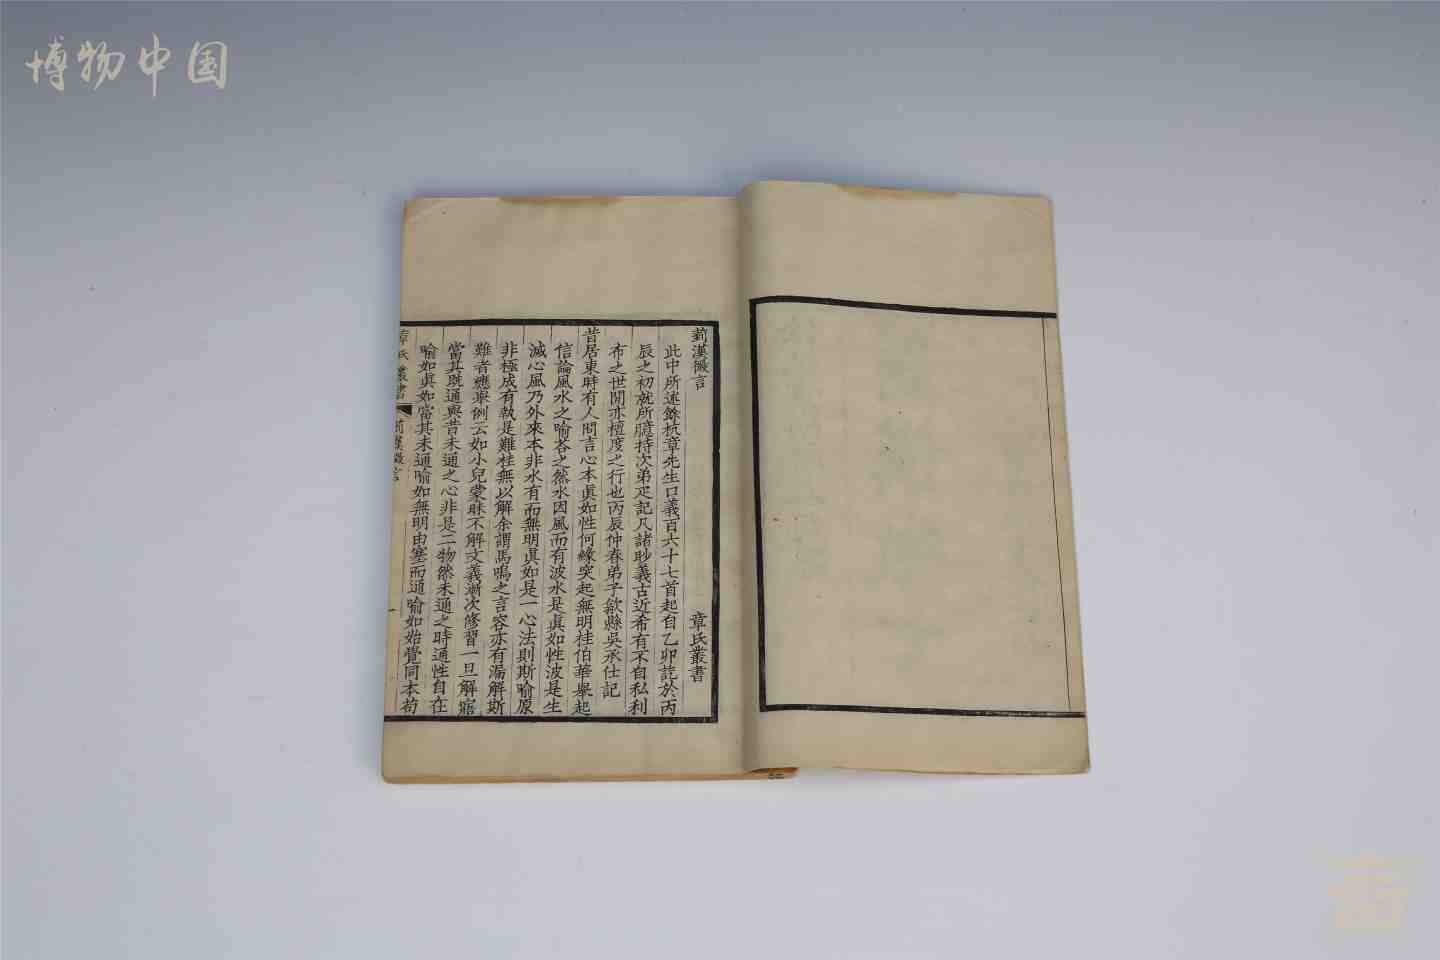 博物中国
菿漢微言
章氏叢書
此中所述餘杭章先生口義百六十七首起自乙卯訖於丙
辰之初就所臆持次弟疋記凡諸眇義古近希有不自私利
布之世閒亦檀度之行也丙辰仲春弟子歙縣吳承仕記
昔居東時有人問言心本眞如性何緣突起無明桂伯華舉起
信論風水之喻荅之然水因風而有波水是眞如性波是生
滅心風乃外來本非水有而無明眞如是一心法則斯喻原
非極成有執是難桂無以解余謂馬鳴之言容亦有漏解斯
難者應舉例云如小兒蒙昧不解文義漸次修習一旦解寤
當其旣通與昔未通之心非是二物然未通之時通性自在
喻如眞如當其未通喻如無明由塞而通喻如始覺同本苟
章氏叢書
菿漢微言
一